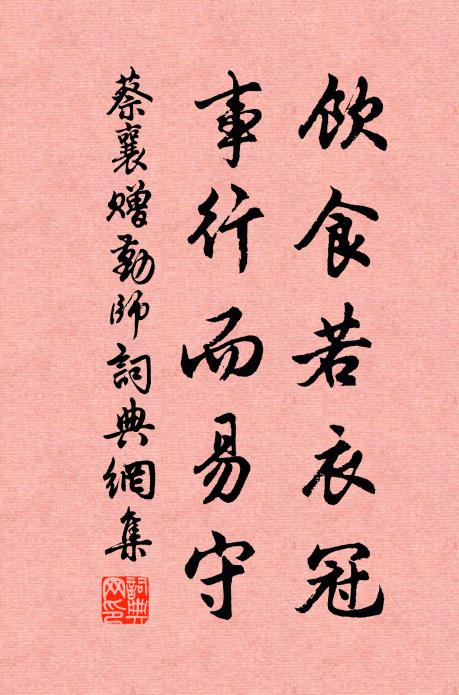 飲食若衣冠
事行而易守
蔡襄赠勤師詞典網集
詞典網印